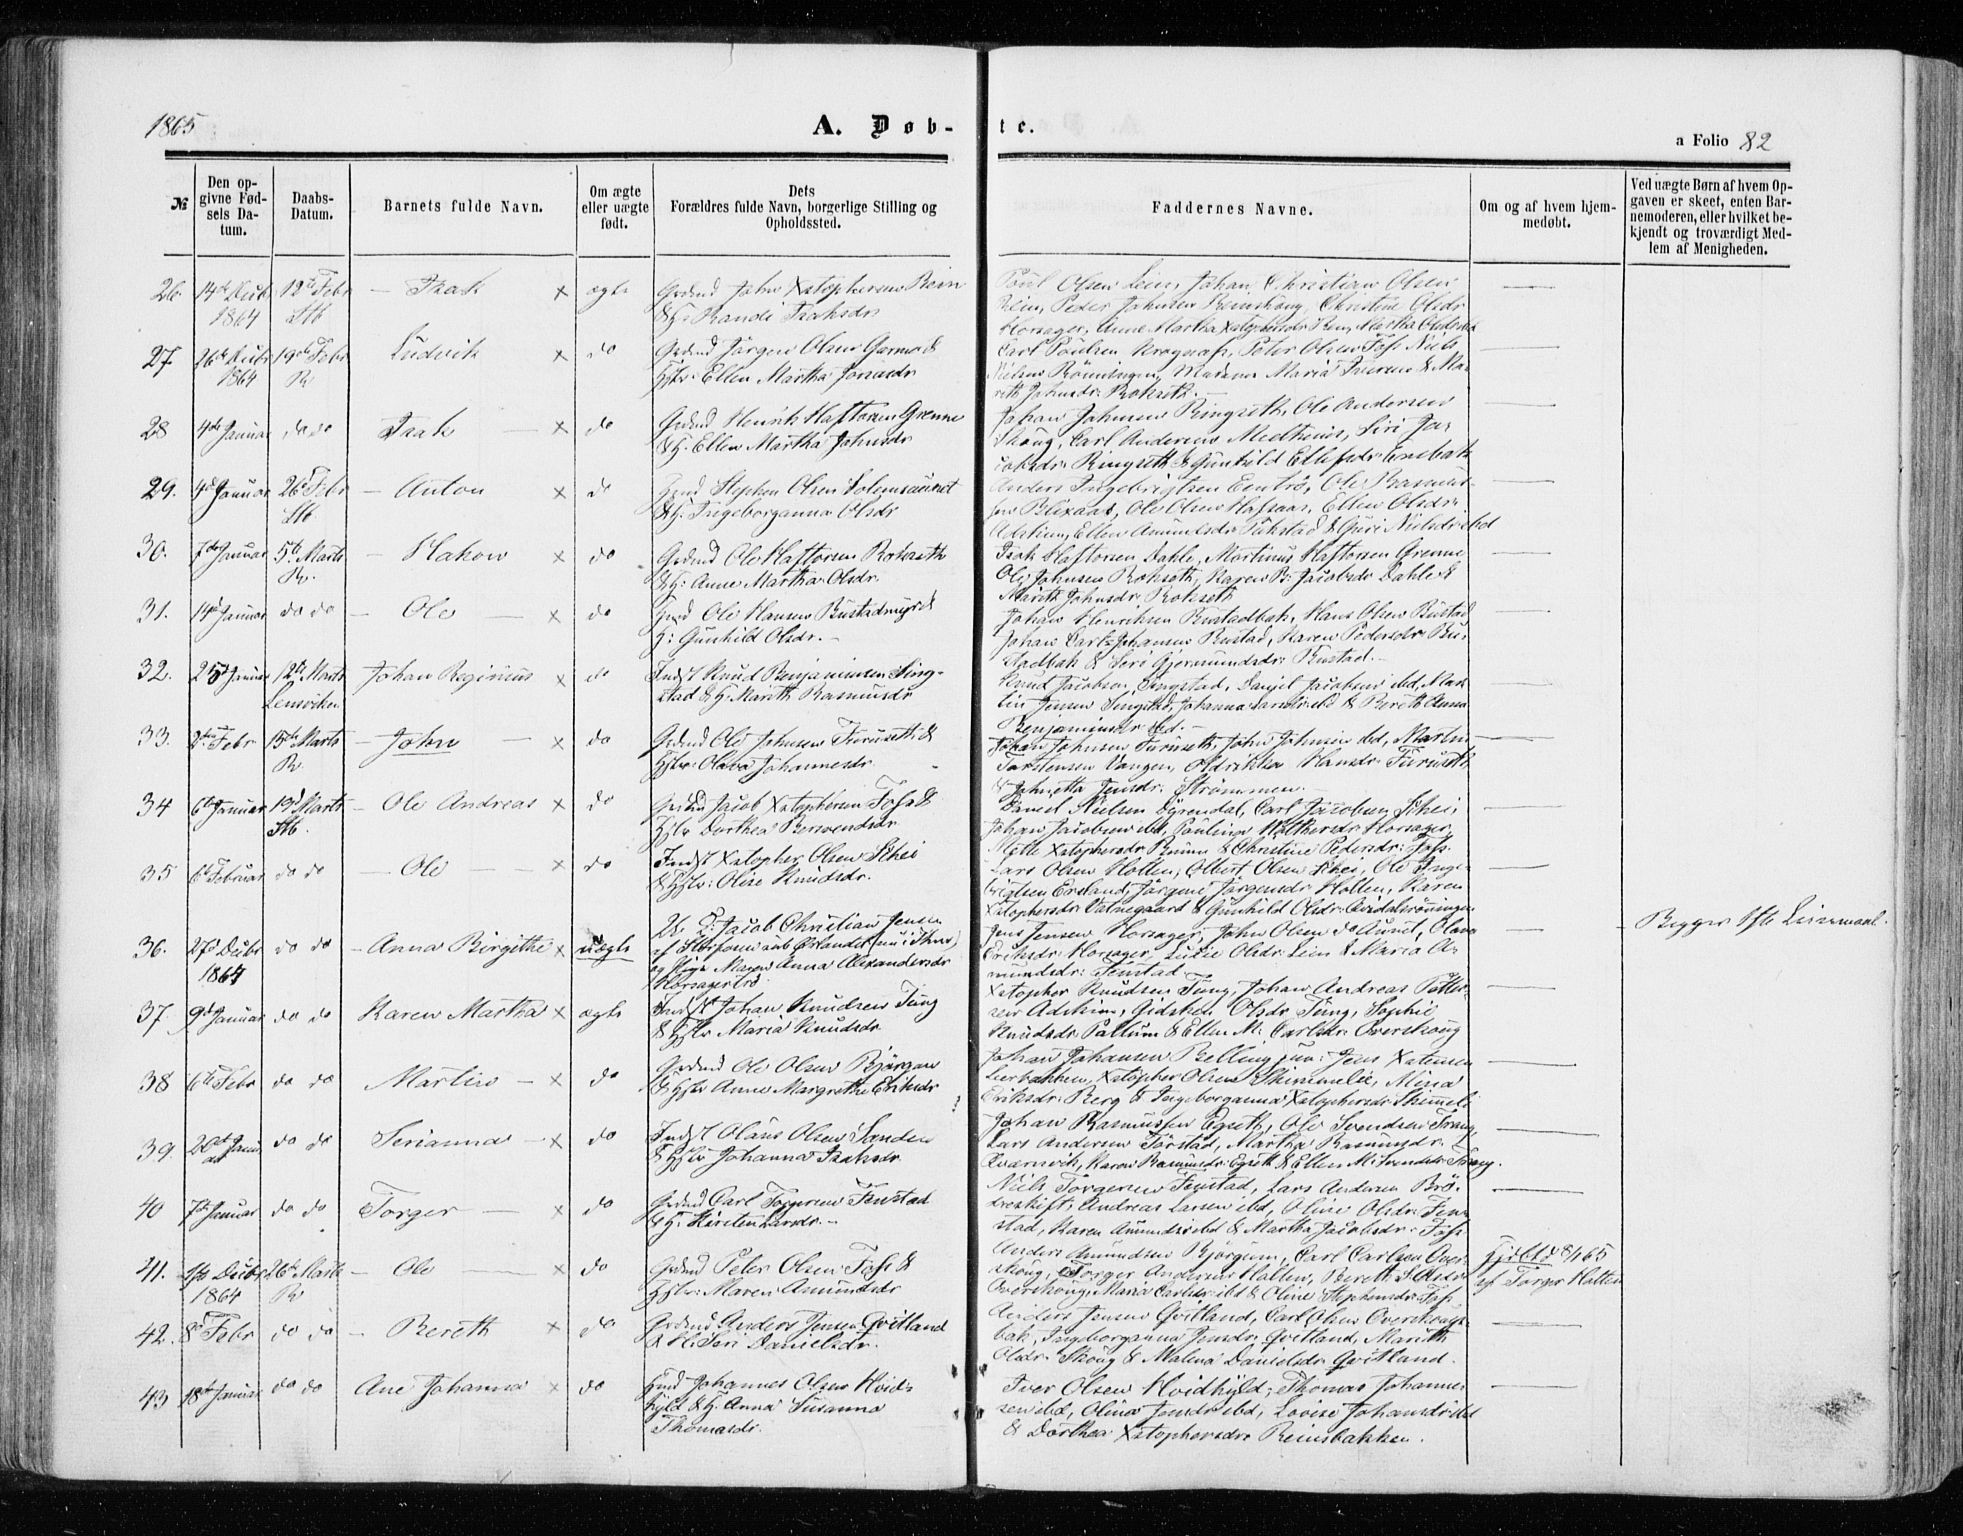 1865
A. Døb-
te.
a Folio 82
№
Den op-
givne Fød-
sels Da-
tum.
Daabs-
Datum.
Barnets fulde Navn.
Om ægte
eller uægte
født.
Dets
Forældres fulde Navn, borgerlige Stilling og
Opholdssted.
Faddernes Navne.
Om og af hvem hjem-
medøbt.
Ved uægte Børn af hvem Op-
gaven er skeet, enten Bar-
nemoderen, eller hvilket be-
kjendt og troværdigt Med-
lem af Menigheden.
26. 14de Decbr 12te Febr – Isak × ægte Grdmd John Xstophersen Rein
1864 Stb & H: Randi Isaksdr
Poul Olsen Lein, Johan Christian Olsen
Rein, Peder Johnsen Reinskoug, Christine Olsdr
Horsager, Anne Martha Xstophersdr Rein, Martha Olsdr ibd
27. 26de Decbr 19de Febr Ludvik × do Grdmd Jørgen Olsen Garmo &
1864 R. Hstr: Ellen Martha Jonasdr
Carl Poulsen Krognæss, Peter Olsen Foss, Niels
Nielsen Rønningen, Madame Maria Iversen & Ma-
reth Johnsdr: Rokseth.
28 4de Januar do do Isak – × do Grdmd Henrik Haftorsen Grenne
& H. Ellen Martha Johnsdr
Johan Johnsen Ringseth, Ole Andersen
Skoug, Carl Andersen Medheim, Siri Ja-
cobsdr: Ringseth & Gunhild Ellefsdr
29. 4de Januar 26de Febr – Anton × do Hmd Stephen Olsen Solemsaunet
Stb & H: Ingeborganna Olsdr
Anders Ingebrigtsen Eentrø, Ole Rasmus-
sen Blixaas, Ole Olsen Hafsaas, Ellen Olsdr:
Askim, Ellen Amundsdr & Guri Nielsdr ibd
30. 7de Januar 5te Marts – Hakon × do Grdmd Ole Haftorsen Rokseth
R. & H: Anne Martha Olsdr.
Isak Haftorsen Dahle, Martinus Haftorsen Grenne
Ole Johnsen Rokseth, Karen B: Jacobsdr Dahle &
Mareth Johnsdr: Rokseth
31. 14de Januar do do – Ole – × do Hmd Ole Hansen Rustadmyr &
H: Gunhild Olsdr. –
Johan Henriksen Rustadbak, Hans Olsen Rustad
Johan Carl Johansen Rustad, Karen Pedersdr Ru-
stadbak & Seri Gjermundsdr: Rustad. –
32. 25de Januar 12te Marts Johan Reginius × do Indst Knud Benjaminsen Sing-
Lensviken stad & H. Mareth Rasmusdr
Knud Jacobsen Singstad, Daniel Jacobsen ibd,
Jensen Singstad, Johanna Larsdr ibd & Bereth Anna
Benjaminsdr ibd. –
33. 2den Febr 15de Marts – John – × do Grdmd Ole Johnsen Furuseth &
R. Hstr: Olava Johannesdr.
Johan Johnsen Furuseth, John Johnsen ibd, Martin
Torstensen Vangen, Oldrikka Hansdr: Furuseth
& Johnetta Jensdr: Strømmen.
34 6te Januar 19de Marts – Ole Andreas × do Grdmd Jacob Xstophersen Foss &
Stb. Hstr Dorthea Berendsdr
Daniel Nielsen Dyrendal, Carl Jacobsen Schei,
Johan Jacobsen ibd, Pauline Walthersdr: Horsager
Mette Xstophersdr Reinen & Christine Pedersdr: Foss.
35 6te Februar do do – Ole – – × do Indst Xstopher Olsen Schei
& Hstr: Olise Knudsdr.
Lars Olsen Holten, Olbert Olsen Schei, Ole Inge-
brigtsen Ersland, Jørgine Jørgensdr Holten, Karen
Xstophersdr: Vatnegaard & Gunhild Olsdr:
36. 27de Decbr do do – Anna Birgithe × uægte J: Jacob Christian Jensen
1864 af Storfosen nu i
og Pige Maren Anna Alexandersdr
Horsagertrø
Jens Jensen Horsager, John Olsen Olava
Eriksdr: Horsager, Lusie Olsdr: Lein & Maria A-
mundsdr: Fenstad.
Begges 1ste Leiermaal.
37. 9de Januar do do Karen Martha × ægte Indst Johan Knudsen Teng
& Hstr Maria Knudsdr
Xstopher Knudsen Teng, Johan Andreas Petter-
sen Askim, Gidsken Olsdr Teng, Sophie
Knudsdr: Pallum & Ellen M: Carlsdr: Overskoug
38 6te Febr do do Martin – × do Grdmd Ole Olsen Bjørgan
& Hstr Anne Margrethe Eriksdr
Johan Johansen Belleng jun: Jens Xstensen
Leerbakken, Xstopher Olsen Skimmelie, Mina
Eriksdr: Berg & Ingeborganna Xstophersdr: Skimeli
39. 20de Januar do do Serianna – × do Indst Olaus Olsen Sanden
& Hstr Johanna Isaksdr
Johan Rasmussen Egseth, Ole Svendsen Trang
Lars Andersen Førstad, Martha Rasmusdr.
Qvarnvik, Karen Rasmusdr: Egseth & Ellen M: Svendsdr: Trang.
40 7de Januar do do Torger – × do Grdmd Carl Torgersen Fenstad
& H: Kirsten Larsdr. –
Niels Torgersen Fenstad, Lars Andersen Brø-
dreskift, Andreas Larsen ibd, Oline Olsdr: Fen-
stad, Karen Amundsdr ibd & Martha Jacobsdr: Foss
41. 1ste Decbr 26de Marts – Ole – × do Grdmd Peter Olsen Foss &
1864 R Hstr: Maren Amundsdr
Anders Amundsen Bjørgum, Carl Carlsen Over-
skoug, Torger Andersen Hatten, Bereth S. Olsdr
Overskoug, Maria Carlsdr: ibd & Oline Stephensdr: Foss
Hjdbt d 8/1 65
af Torger Hatten
42. 8de Febr do do – Bereth × do Grdmd Anders Jensen Qvitland
& H: Seri Danielsdr.
Anders Jensen Qvitland, Carl Olsen Overskougs-
bak, Ingeborganna Jensdr: Qvitland, Mareth
Olsdr: Skoug & Malena Danielsdr Qvitland.
43 18de Januar do do Ane Johanna × do Hmd Johannes Olsen Hvid-
hyld & H. Anna Susanna
Thomasdr.
Iver Olsen Hvidhyld, Thomas Johanne-
sen ibd, Olina Jensdr ibd, Lovise Johansdr ibd
& Dorthea Xstophersdr Reinsbakken.